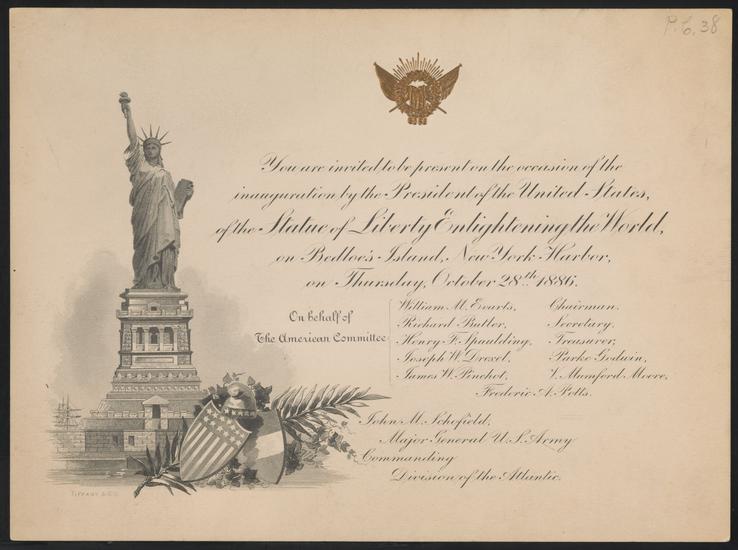 P.C. 38
You are invited to be present on the occasion of the
inauguration by the President of the United States,
of the Statue of Liberty Enlightening the World,
on Bedloe's Island, New York Harbor,
on Thursday, October 28th 1886.
On behalf of
The American Committee
William M. Evarts, Chairman.
Richard Butler, Secretary.
Henry F. Spaulding, Treasurer,
Joseph W. Drexel, Parke Godwin,
James W. Pinchot, V. Mumford Moore,
Frederic A. Potts.
John M. Schofield,
Major General U.S. Army
Commanding
Division of the Atlantic.
TIFFANY & CO.